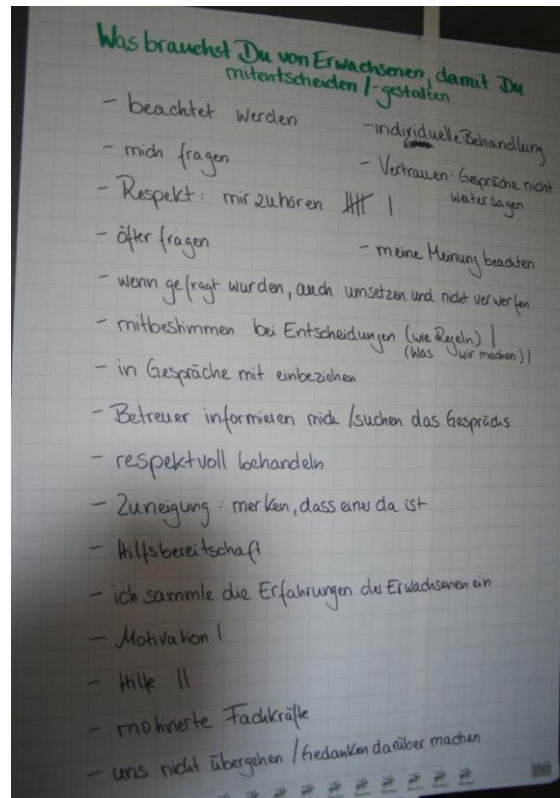 Was brauchst Du von Erwachsenen, damit Du
mitentscheiden /-gestalten
- beachtet werden
- individuelle Behandlung
- mich fragen
- Vertrauen: Gespräche nicht
weitersagen
- Respekt: mir zuhören |||| |
- öfter fragen
- meine Meinung beachten
- wenn gefragt wurden, auch umsetzen und nicht verwerfen
- mitbestimmen bei Entscheidungen (wie Regeln) |
(Was wir machen) |
- in Gespräche mit einbeziehen
- Betreuer informieren mich / suchen das Gesprächs
- respektvoll behandeln
- Zuneigung: merken, dass einer da ist
- Hilfsbereitschaft
- ich sammle die Erfahrungen des Erwachsenen ein
- Motivation |
- Hilfe ||
- motivierte Fachkräfte
- uns nicht übergehen / Gedanken darüber machen